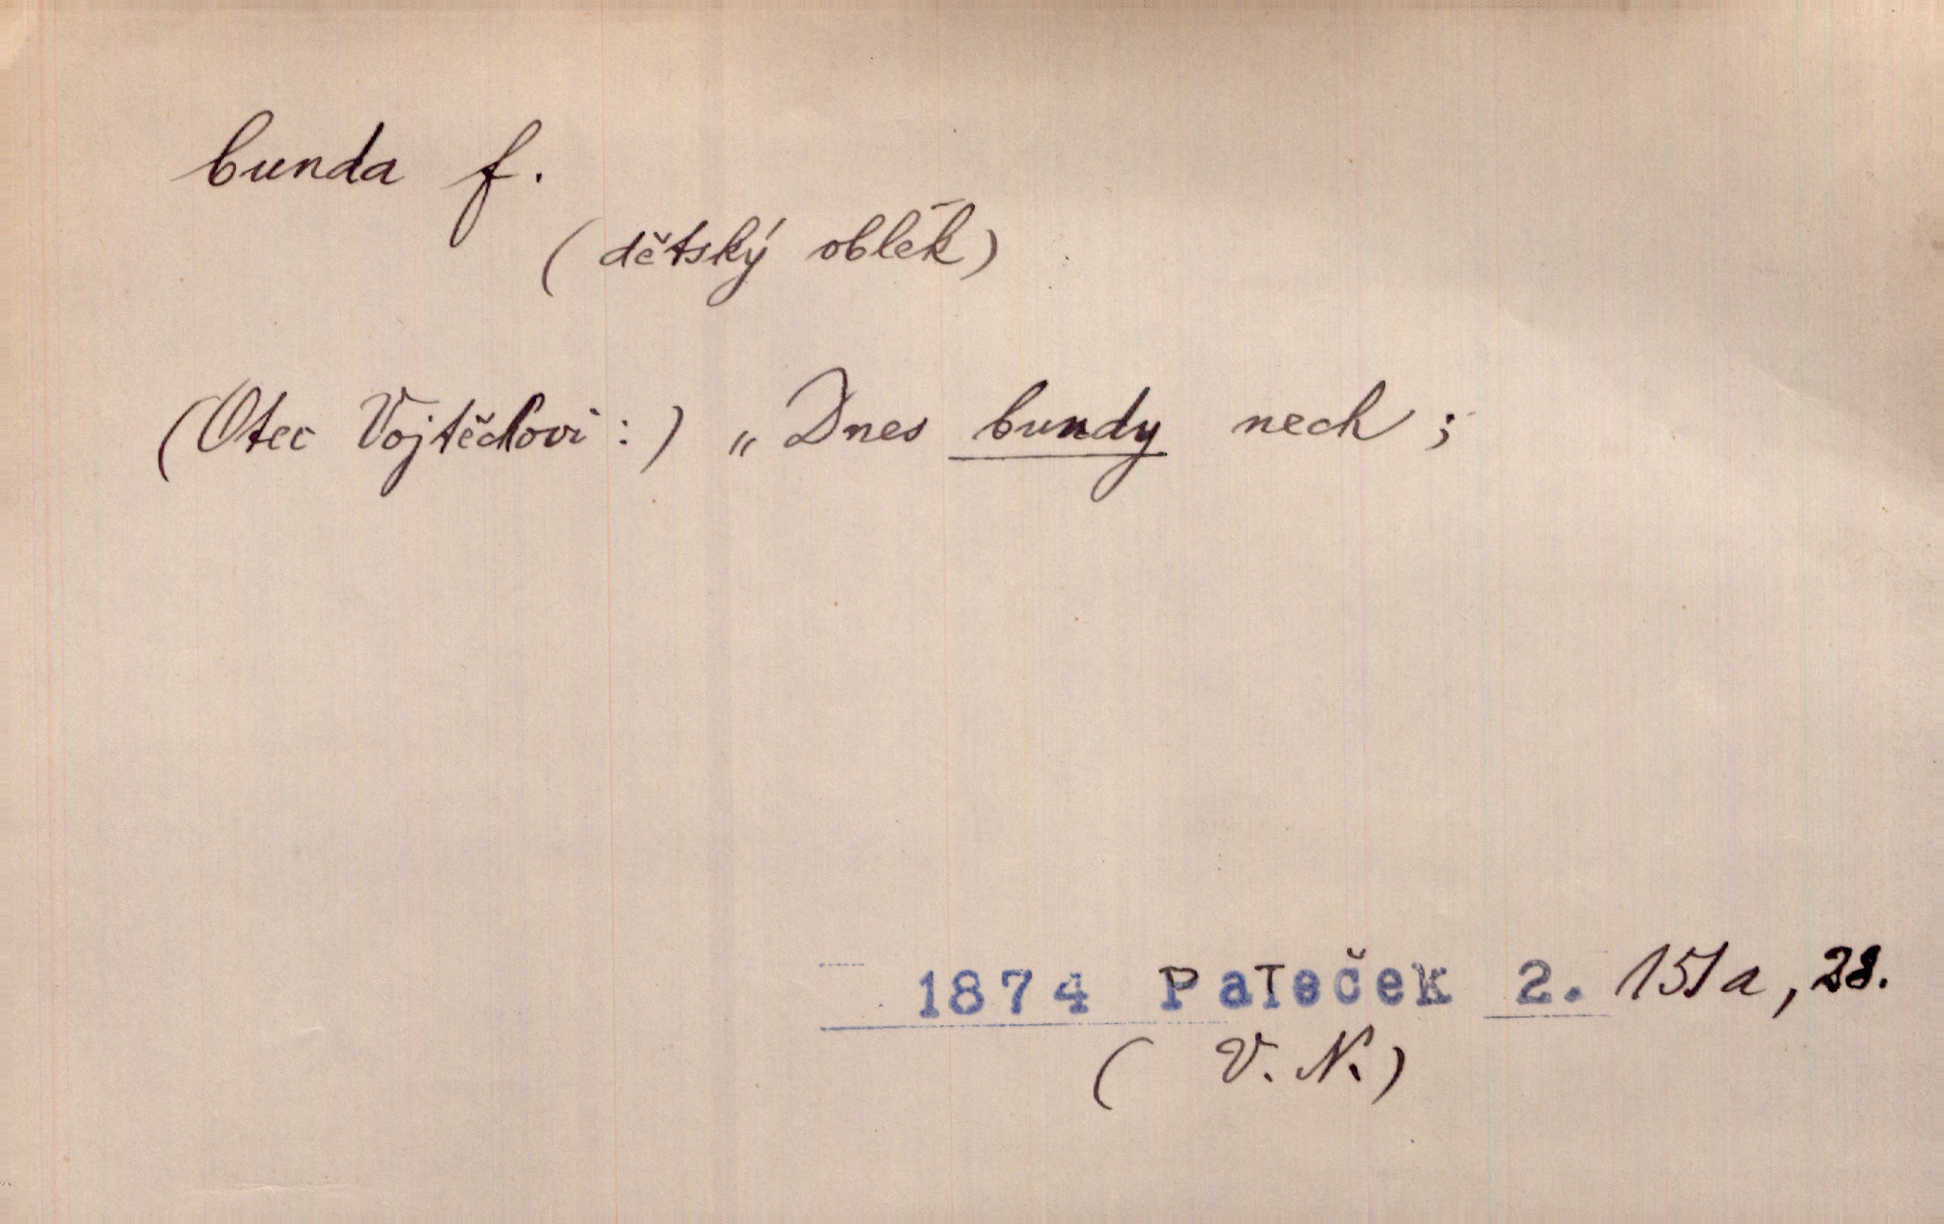 bunda f.
(dětský oblek)
(Otec Vojtěchovi:) „Dnes bundy nech;
1874 Paleček 2. 151a, 28.
(V. N.)